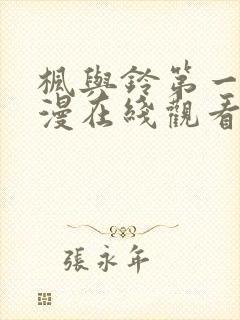 楓與鈴第一
漫在綫觀看
張永年